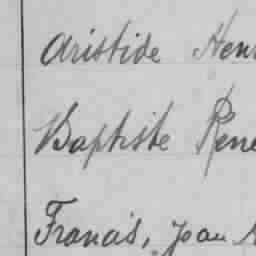 Aristide Hen
Baptiste René
Franois, Jean